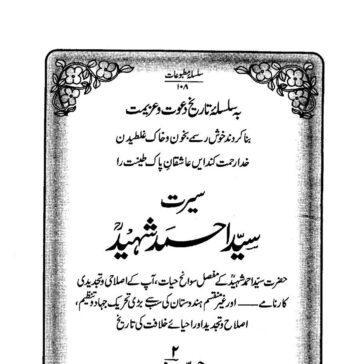 سلسلۂ مطبوعات
۱۰۸
بہ سلسلۂ تاریخ دعوت و عزیمت
بنا کردند خوش رسمے بخون و خاک غلطیدن
خدا رحمت کند ایں عاشقان پاک طینت را
سیرت
سید احمد شہیدؒ
حضرت سید احمد شہیدؒ کے مفصل سوانح حیات، آپ کے اصلاحی و تجدیدی
کارنامے — اور غیر منقسم ہندوستان کی سب سے بڑی تحریک جہاد و تنظیم،
اصلاح و تجدید اور احیائے خلافت کی تاریخ
۲